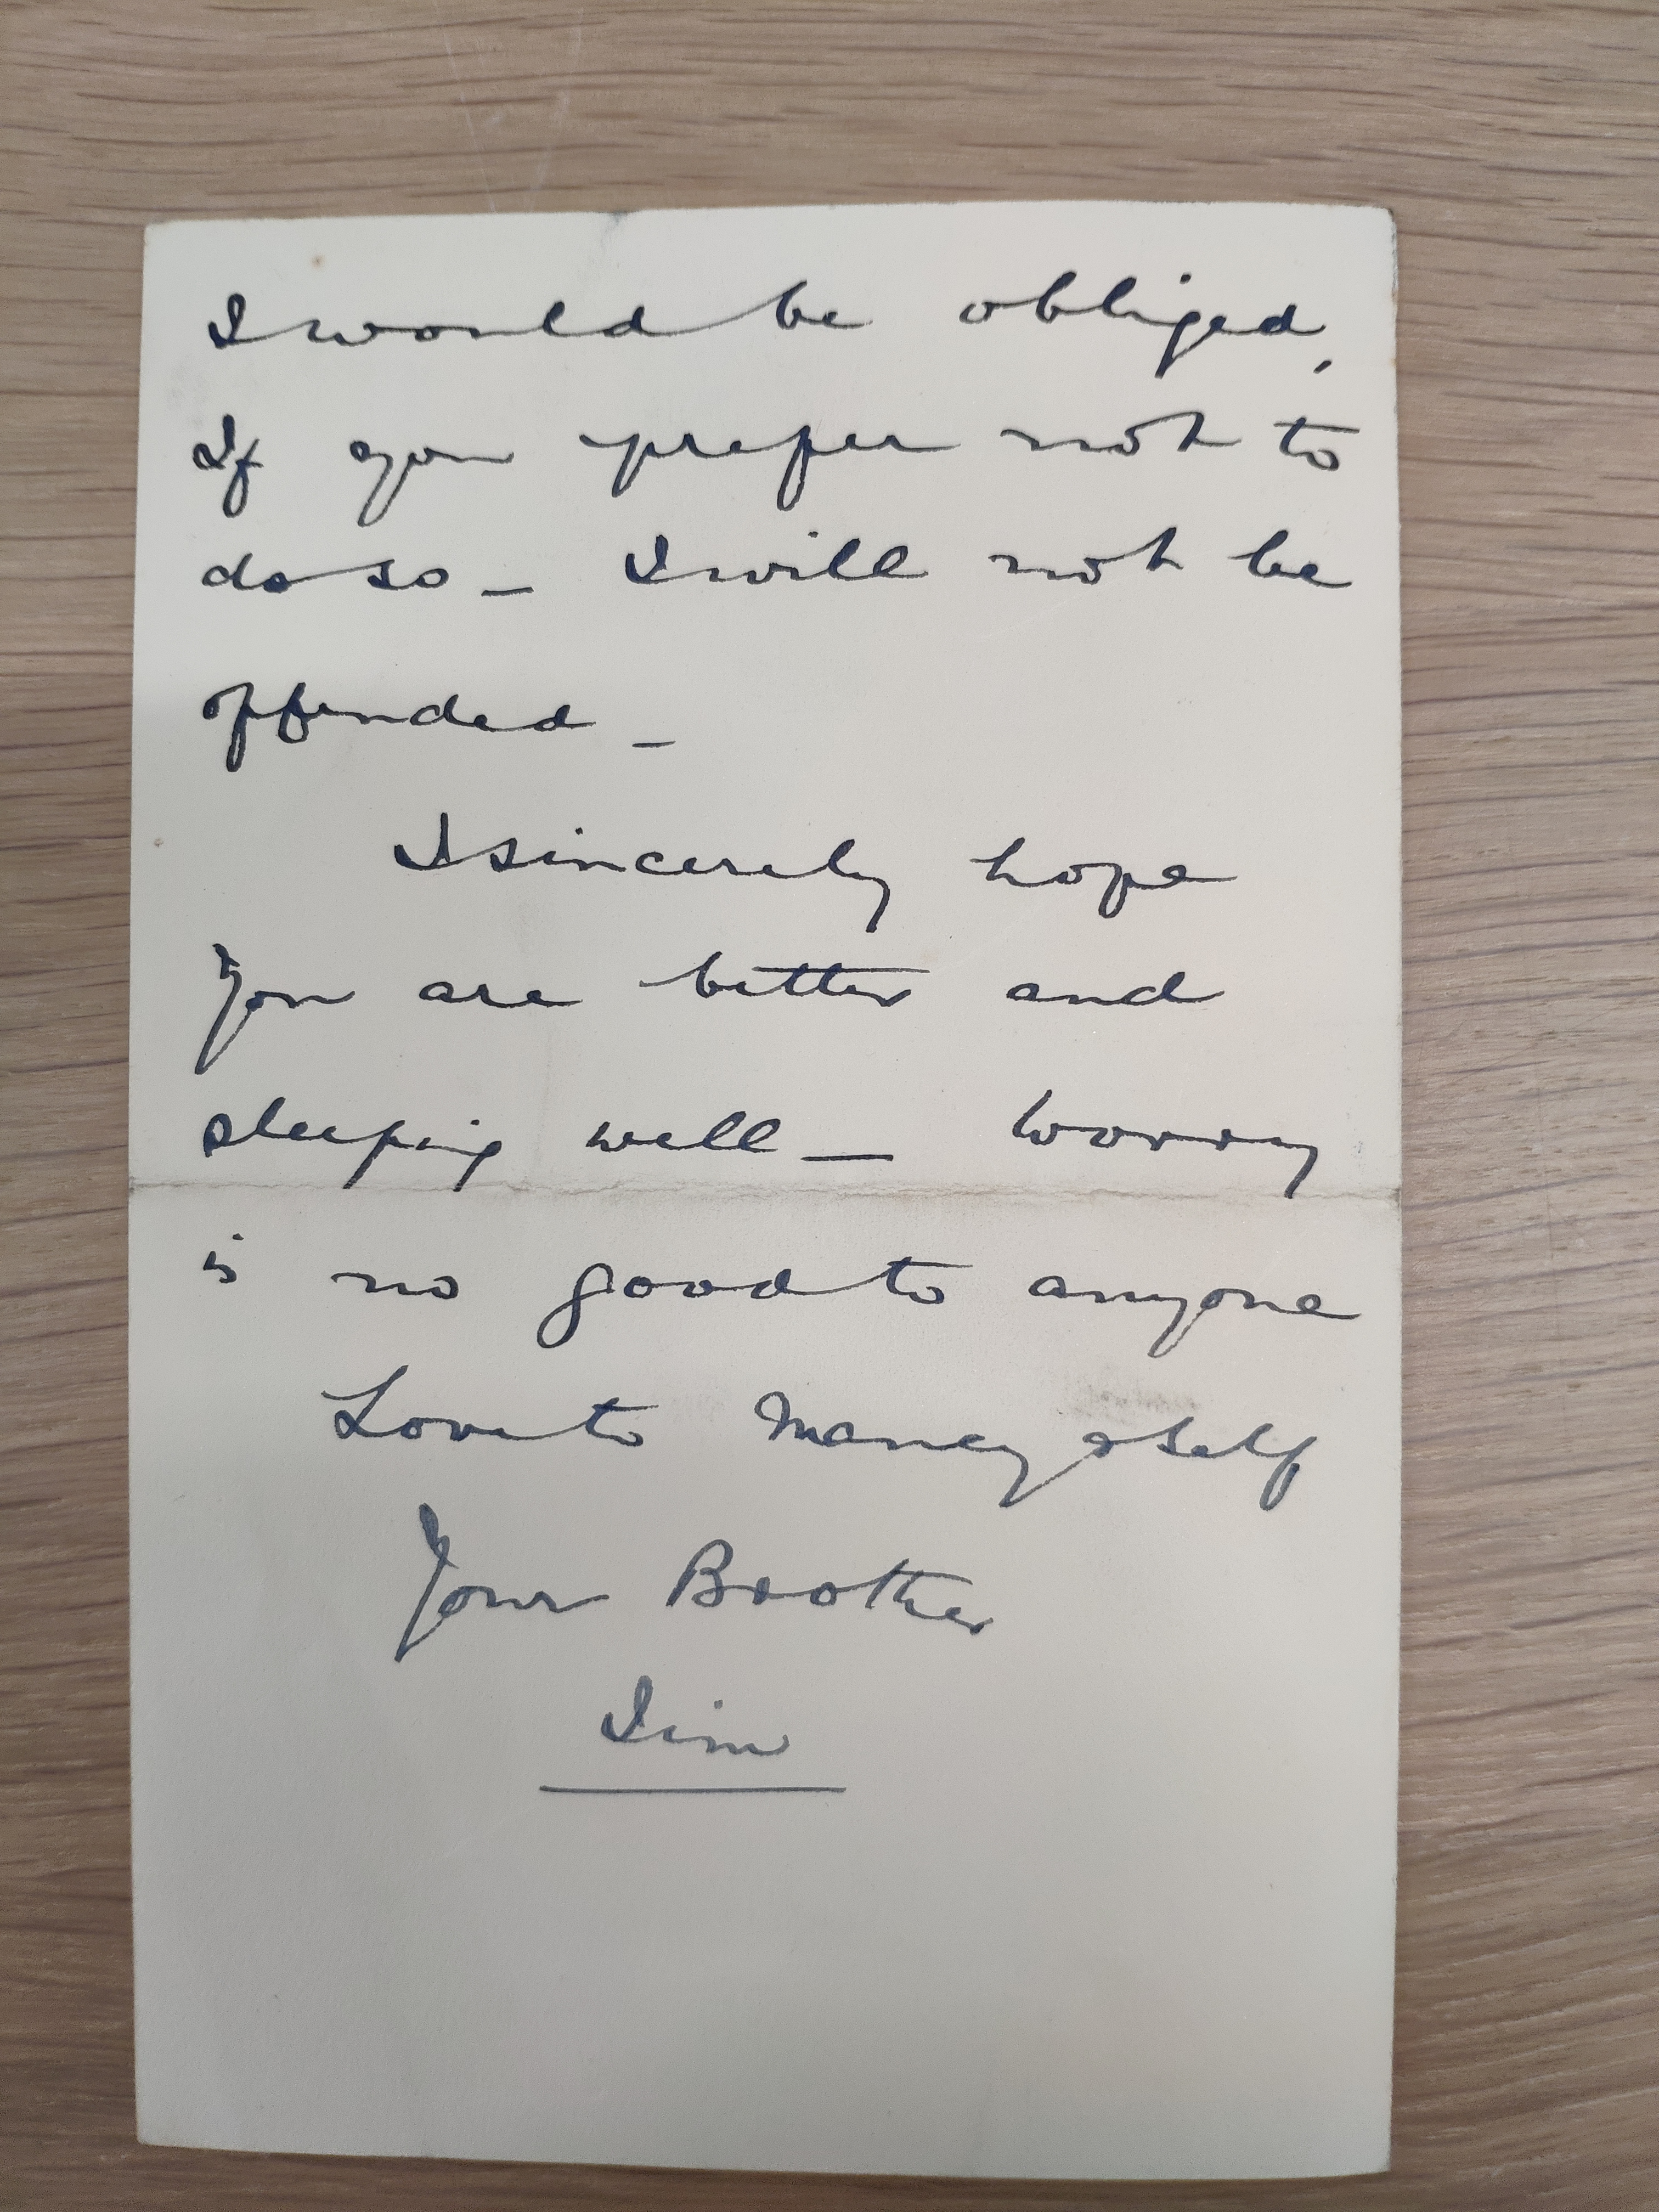 I would be obliged,
If you prefer not to
do so – I will not be
offended –
I sincerely hope
you are better and
sleeping well – worry
is no good to anyone
Love to Nancy & self
Your Brother
Jim